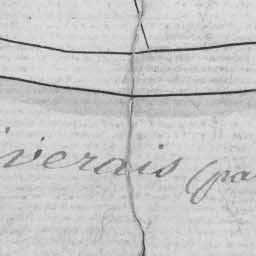 iverais (pa